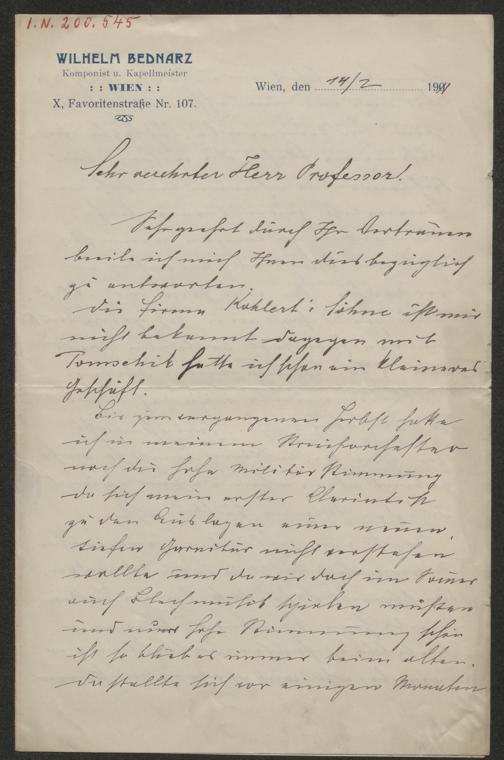 I.N. 200.545
WILHELM BEDNARZ
Komponist u. Kapellmeister
: : WIEN : :
X, Favoritenstraße Nr. 107.
Wien, den 14/2 1901
Sehr verehrter Herr Professor!
Sehr geehrt durch Ihr Vertrauen
beeile ich mich Ihnen diesbezüglich
zu antworten.
Die Firma Kohlert's Söhne ist mir
nicht bekannt dagegen mit
Tomschik hatte ich schon ein kleineres
Geschäft.
Bis zum vergangenen Herbst hatte
ich in meinem Streichorchester
noch die hohe Militär Stimmung
da sich mein erster Clarinetist
zu den Auslagen einer neuen,
tiefen Garnitur nicht verstehen
wollte und da wir doch im Somer
auch Blechmusik spielen mußten
und nur hohe Stimmung schön
ist so blieb es immer beim alten.
Da stellte sich vor einigen Monaten